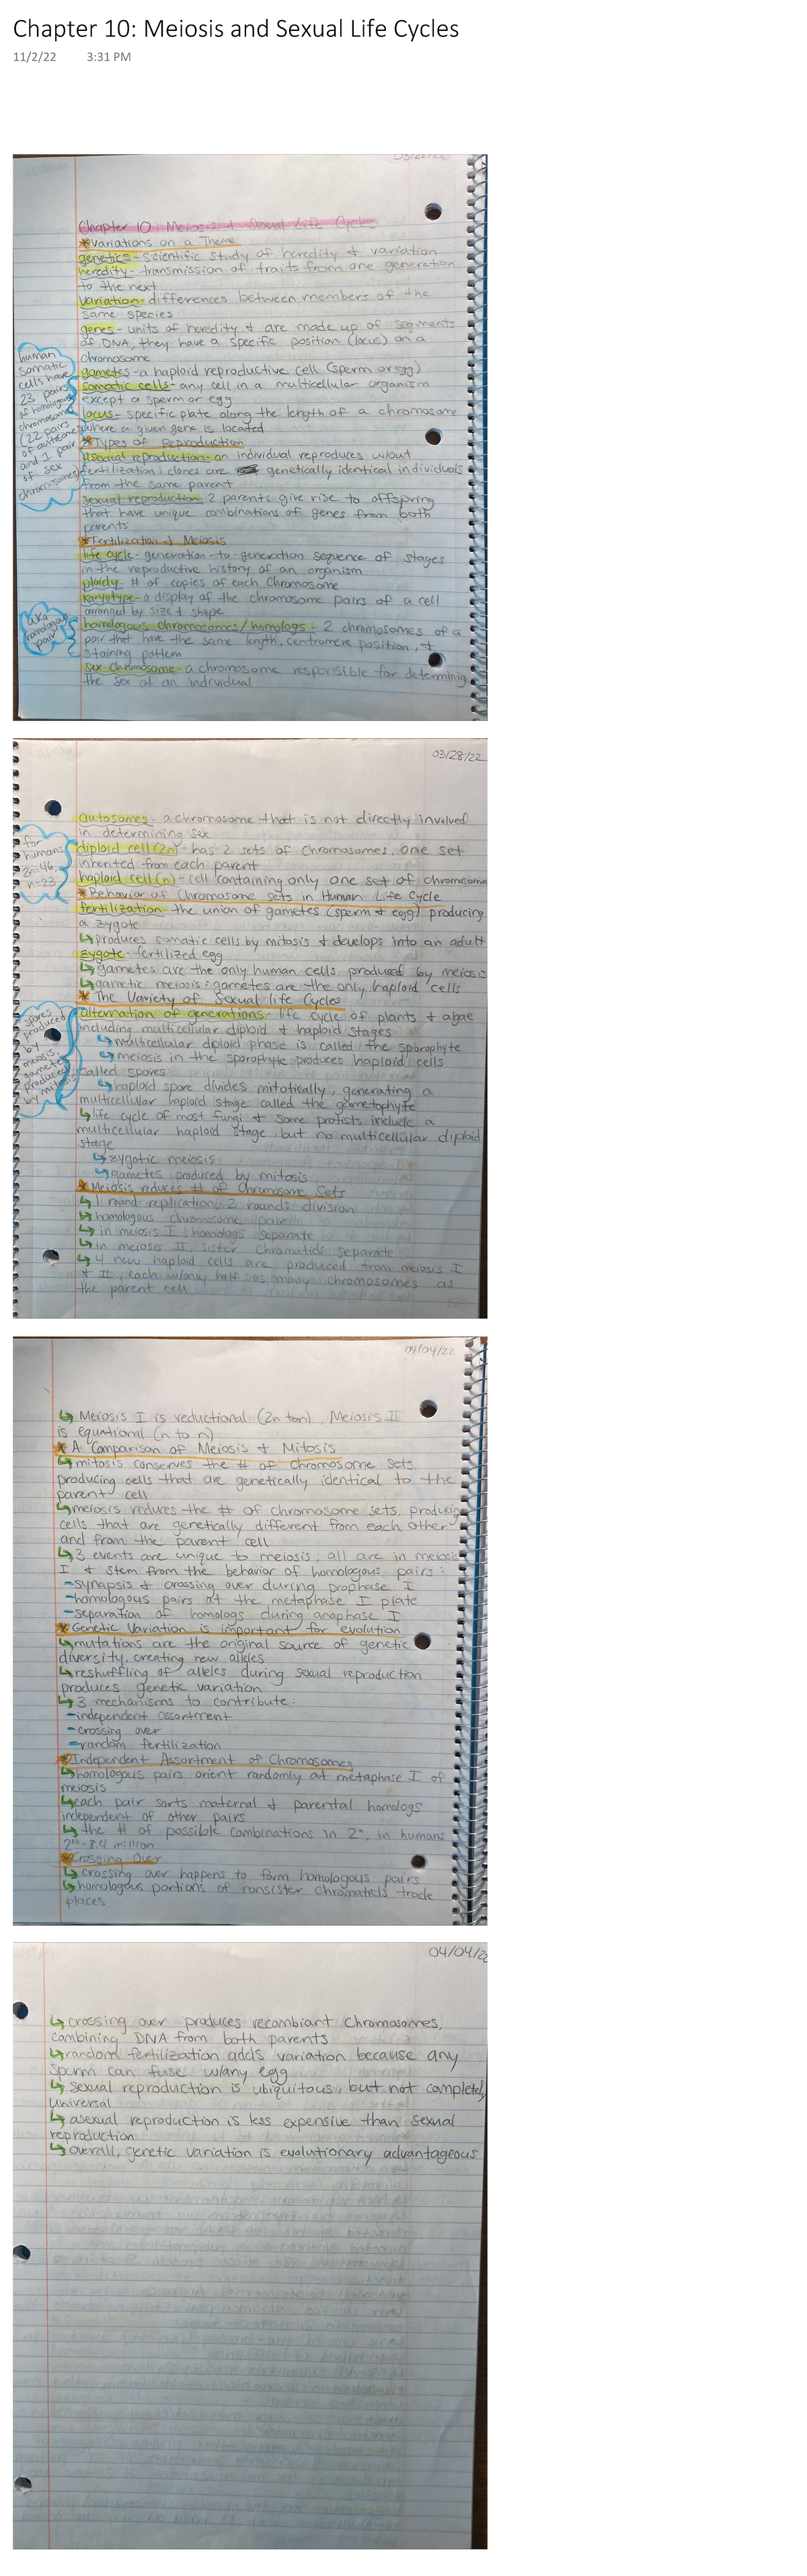 Chapter 10: Meiosis and Sexual Life Cycles
11/2/22 3:31 PM
Chapter 10: Meiosis & Sexual Life Cycles
*Variations on a Theme
genetics- scientific study of heredity & variation
heredity- transmission of traits from one generation
to the next
variation- differences between members of the
same species
genes- units of heredity & are made up of segments
of DNA, they have a specific position (locus) on a
chromosome
gametes- a haploid reproductive cell (sperm or egg)
somatic cells- any cell in a multicellular organism
except a sperm or egg
locus- specific plate along the length of a chromosome
where a given gene is located
*Types of Reproduction
asexual reproduction- an individual reproduces w/out
fertilization; clones are genetically identical individuals
from the same parent
sexual reproduction- 2 parents give rise to offspring
that have unique combinations of genes from both
parents
*Fertilization & Meiosis
life cycle- generation-to-generation sequence of stages
in the reproductive history of an organism
ploidy- # of copies of each chromosome
karyotype- a display of the chromosome pairs of a cell
arranged by size & shape
homologous chromosomes/homologs- 2 chromosomes of a
pair that have the same length, centromere position, &
staining pattern
sex chromosome- a chromosome responsible for determining
the sex of an individual
human
somatic
cells have
23 pairs
of homologous
chromosomes
(22 pairs
of autosomes
and 1 pair
of sex
chromosomes)
aka
homologous
pair
03/28/22
autosomes- a chromosome that is not directly involved
in determining sex
diploid cell (2n)- has 2 sets of chromosomes, one set
inherited from each parent
haploid cell (n)- cell containing only one set of chromosomes
*Behavior of Chromosome sets in Human Life Cycle
fertilization- the union of gametes (sperm & egg) producing
a zygote
↳produces somatic cells by mitosis & develops into an adult
zygote- fertilized egg
↳gametes are the only human cells produced by meiosis
↳gametic meiosis: gametes are the only haploid cells
* The Variety of Sexual life Cycles
alternation of generations- life cycle of plants & algae
including multicellular diploid & haploid stages
↳multicellular diploid phase is called the sporophyte
↳meiosis in the sporophyte produces haploid cells
called spores
↳haploid spore divides mitotically, generating a
multicellular haploid stage called the gametophyte
↳life cycle of most fungi & some protists include a
multicellular haploid stage, but no multicellular diploid
stage
↳zygotic meiosis
↳gametes produced by mitosis
*Meiosis reduces # of Chromosome Sets
↳1 round replication, 2 rounds division
↳homologous chromosome pairs
↳in meiosis I, homologs separate
↳in meiosis II, sister chromatids separate
↳4 new haploid cells are produced from meiosis I
& II, each w/only half as many chromosomes as
the parent cell
for
humans
2n=46,
n=23
spores
produced
by
meiosis,
gametes
produced
by mitosis
04/04/22
↳ Meiosis I is reductional (2n to n), Meiosis II
is equational (n to n)
* A Comparison of Meiosis & Mitosis
↳mitosis conserves the # of chromosome sets,
producing cells that are genetically identical to the
parent cell
↳meiosis reduces the # of chromosome sets, producing
cells that are genetically different from each other
and from the parent cell
↳3 events are unique to meiosis, all are in meiosis
I & stem from the behavior of homologous pairs:
-synapsis & crossing over during prophase I
-homologous pairs at the metaphase I plate
-separation of homologs during anaphase I
*Genetic Variation is important for evolution
↳mutations are the original source of genetic
diversity, creating new alleles
↳reshuffling of alleles during sexual reproduction
produces genetic variation
↳3 mechanisms to contribute:
-independent assortment
-crossing over
-random fertilization
*Independent Assortment of Chromosomes
↳homologous pairs orient randomly at metaphase I of
meiosis
↳each pair sorts maternal & parental homologs
independent of other pairs
↳the # of possible combinations in 2ⁿ, in humans
2²³=8.4 million
*Crossing Over
↳crossing over happens to form homologous pairs
↳homologous portions of nonsister chromatids trade
places
04/04/22
↳crossing over produces recombiant chromosomes,
combining DNA from both parents
↳random fertilization adds variation because any
sperm can fuse w/any egg
↳ sexual reproduction is ubiquitous, but not completely
universal
↳ asexual reproduction is less expensive than sexual
reproduction
↳overall, genetic variation is evolutionary advantageous